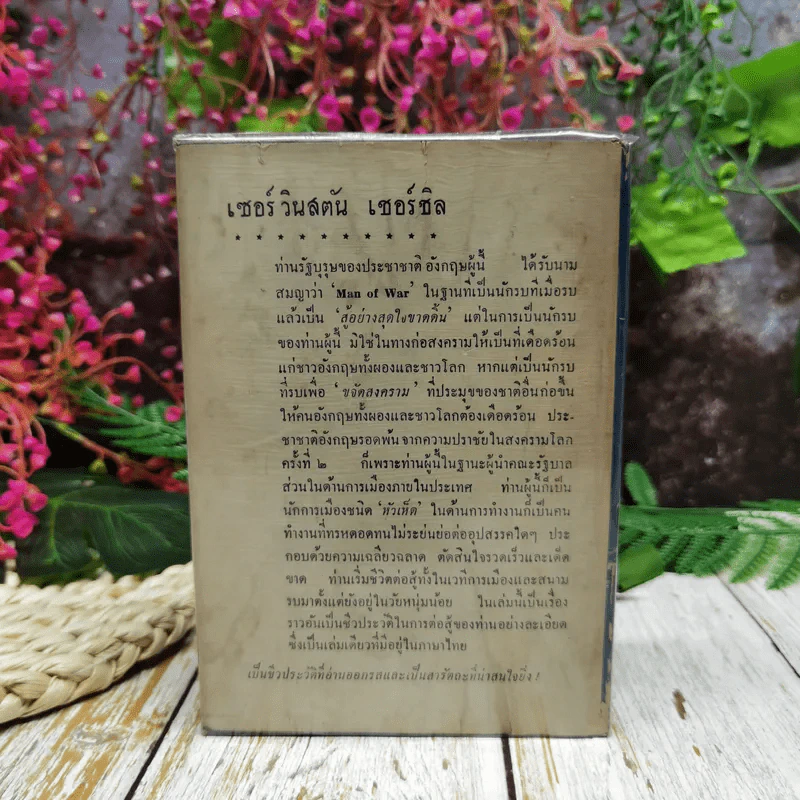 เซอร์ วินสตัน เชอร์ชิล
* * * * * * * * * *
ท่านรัฐบุรุษของประชาชาติ อังกฤษผู้นี้ ได้รับนาม
สมญาว่า ‘Man of War’ ในฐานที่เป็นนักรบที่เมื่อรบ
แล้วเป็น ‘สู้อย่างสุดใจขาดดิ้น’ แต่ในการเป็นนักรบ
ของท่านผู้นี้ มิใช่ในทางก่อสงครามให้เป็นที่เดือดร้อน
แก่ชาวอังกฤษทั้งผองและชาวโลก หากแต่เป็นนักรบ
ที่รบเพื่อ ‘ขจัดสงคราม’ ที่ประมุขของชาติอื่นก่อขึ้น
ให้คนอังกฤษทั้งผองและชาวโลกต้องเดือดร้อน ประ-
ชาชาติอังกฤษรอดพ้นจากความปราชัยในสงครามโลก
ครั้งที่ ๒ ก็เพราะท่านผู้นี้ในฐานะผู้นำคณะรัฐบาล
ส่วนในด้านการเมืองภายในประเทศ ท่านผู้นี้ก็เป็น
นักการเมืองชนิด ‘หัวเห็ด’ ในด้านการทำงานก็เป็นคน
ทำงานที่ทรหดอดทนไม่ระย่นย่อต่ออุปสรรคใดๆ ประ
กอบด้วยความเฉลียวฉลาด ตัดสินใจรวดเร็วและเด็ด
ขาด ท่านเริ่มชีวิตต่อสู้ทั้งในเวทีการเมืองและสนาม
รบมาตั้งแต่ยังอยู่ในวัยหนุ่มน้อย ในเล่มนี้เป็นเรื่อง
ราวอันเป็นชีวประวัติในการต่อสู้ของท่านอย่างละเอียด
ซึ่งเป็นเล่มเดียวที่มีอยู่ในภาษาไทย
เป็นชีวประวัติที่อ่านออกรสและเป็นสารัตถะที่น่าสนใจยิ่ง !